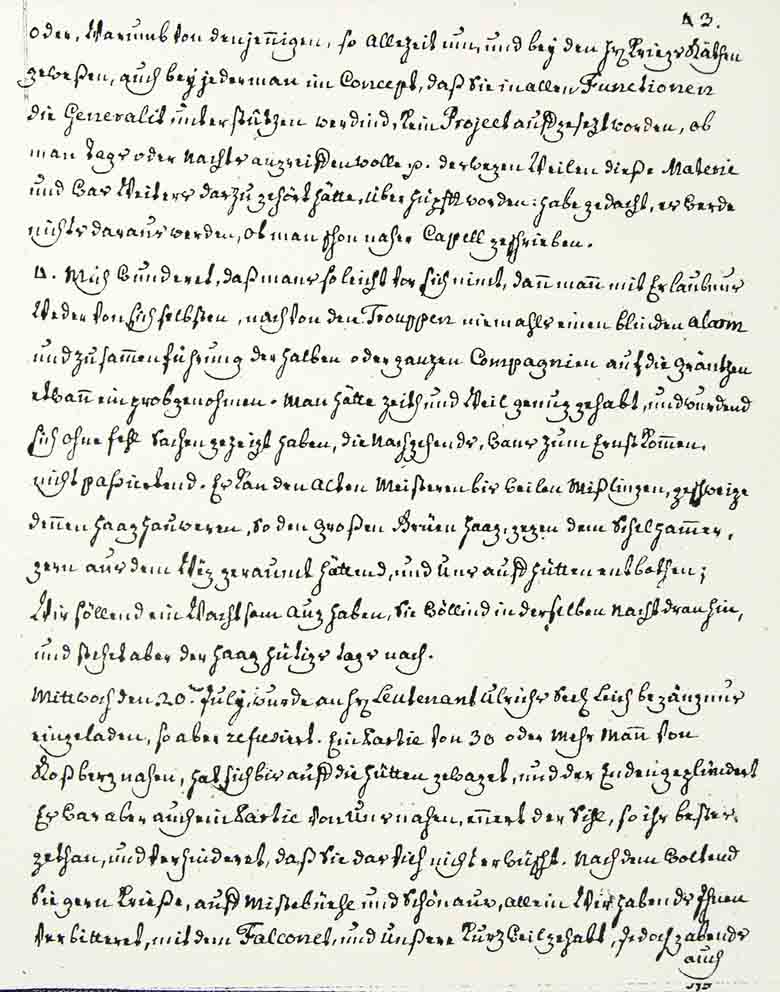 43.
oder, Warumb von denjenigen, so allezeit um, und bey den Hr. Kriegs Räthen
geweßen, auch bey jederman im Concept, daß sie in allen Functionen
die Generalit. unterstützen werdind, kein Project auffgesezt worden, ob
man tags oder nachts angreiffen wolle p. deswegen Weilen dieße Materie
und was Weiters darzu gehört hätte, überhüpfft worden: habe gedacht, es werde
nichts daraus werden, ob man schon naher Capell geschrieben.
4. Mich wunderet, daß mans so leicht vor sich nimt, dann man mit Erlaubnus
Weder von sich selbsten, nach von den Trouppen niemahls einen blinden alarm
und zusammenführung der halben oder ganzen Compagnien auf die Gräntzen
etwann ein prob genohmen. Man hätte zeith und Weil genug gehabt, und wurdend
sich ohne fehl sachen gezeigt haben, die nachgehends, wans zum Ernst kommen,
nicht passiertend. Es kan den alten Meisteren bis weilen mißlingen, geschweige
dennen haaghauweren, so den großen Grüen haag, gegen dem Schelhammer,
gern aus dem Weg geraumt hättend, und uns auff hütten entbothen;
Wir söllend ein Wachtsam aug haben, sie wöllind in derselben nacht dran hin,
und stehet aber der haag hütigs tags nach.
Mittwoch den 20.ten July, wurde an Hr. Leutenant Ulrichs Sech. Leich bezängnus
eingeladen, so aber refusiert. Ein Partie von 30 oder mehr Mann von
Roßberg nahen, hat sich bis auff die hütten gewaget, und der Enden geplündert
Es war aber auch ein Partie von uns nahen, ennert der Sihl, so ihr bestes
gethan, und verhinderet, daß sie das Vich nicht erwüscht. Nachdem woltend
sie gern Prieße, auff Mistebüehl und Schönauw, allein Wir habends Ihnen
verbitteret, mit dem Falconet, und unßere Kurzweil gehabt, Jedoch gabends
auch